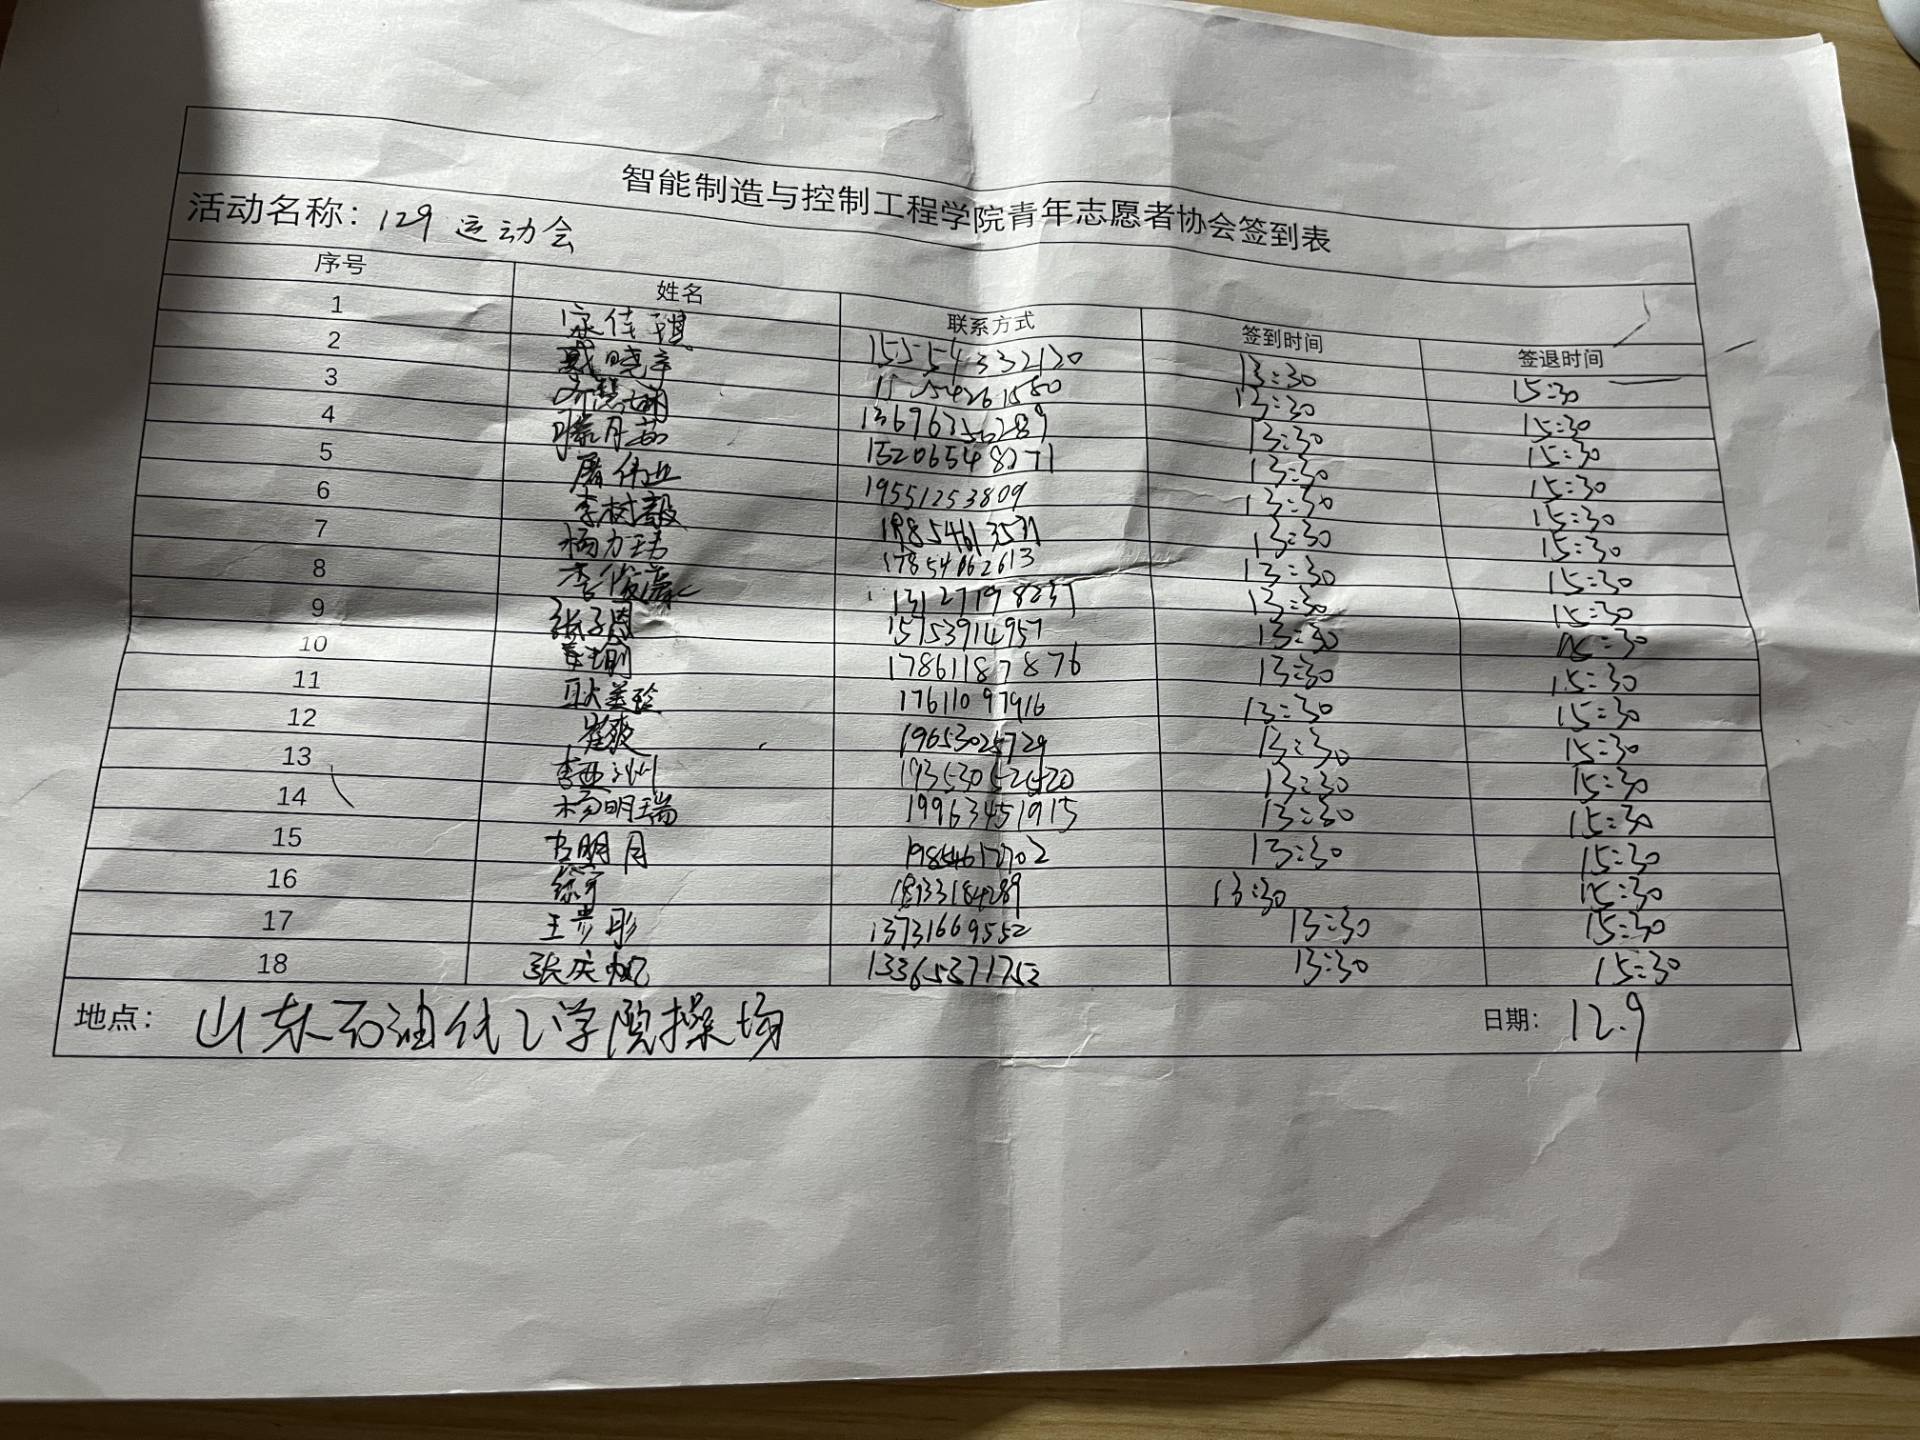 智能制造与控制工程学院青年志愿者协会签到表
活动名称：129 运动会
序号 姓名 联系方式 签到时间 签退时间
1 佳琪 15554332130 13:30 15:30
2 戴晓 13:30 15:30
3 13:30 15:30
4 月 15206548271 13:30 15:30
5 屠伟业 19551253809 13:30 15:30
6 李树毅 13:30 15:30
7 杨力玮 17854062613 13:30 15:30
8 李俊 13127198237 13:30 15:30
9 张子 15753914957 13:30 15:30
10 17861187876 13:30 15:30
11 耿美玲 17611097916 13:30 15:30
12 崔爽 19653025729 13:30 15:30
13 李亚洲 13:30 15:30
14 杨明瑞 19963451915 13:30 15:30
15 明月 13:30 15:30
16 13:30 15:30
17 王 彤 13731669552 13:30 15:30
18 张庆帆 13365371752 13:30 15:30
地点：山东石油化工学院操场 日期：12.9